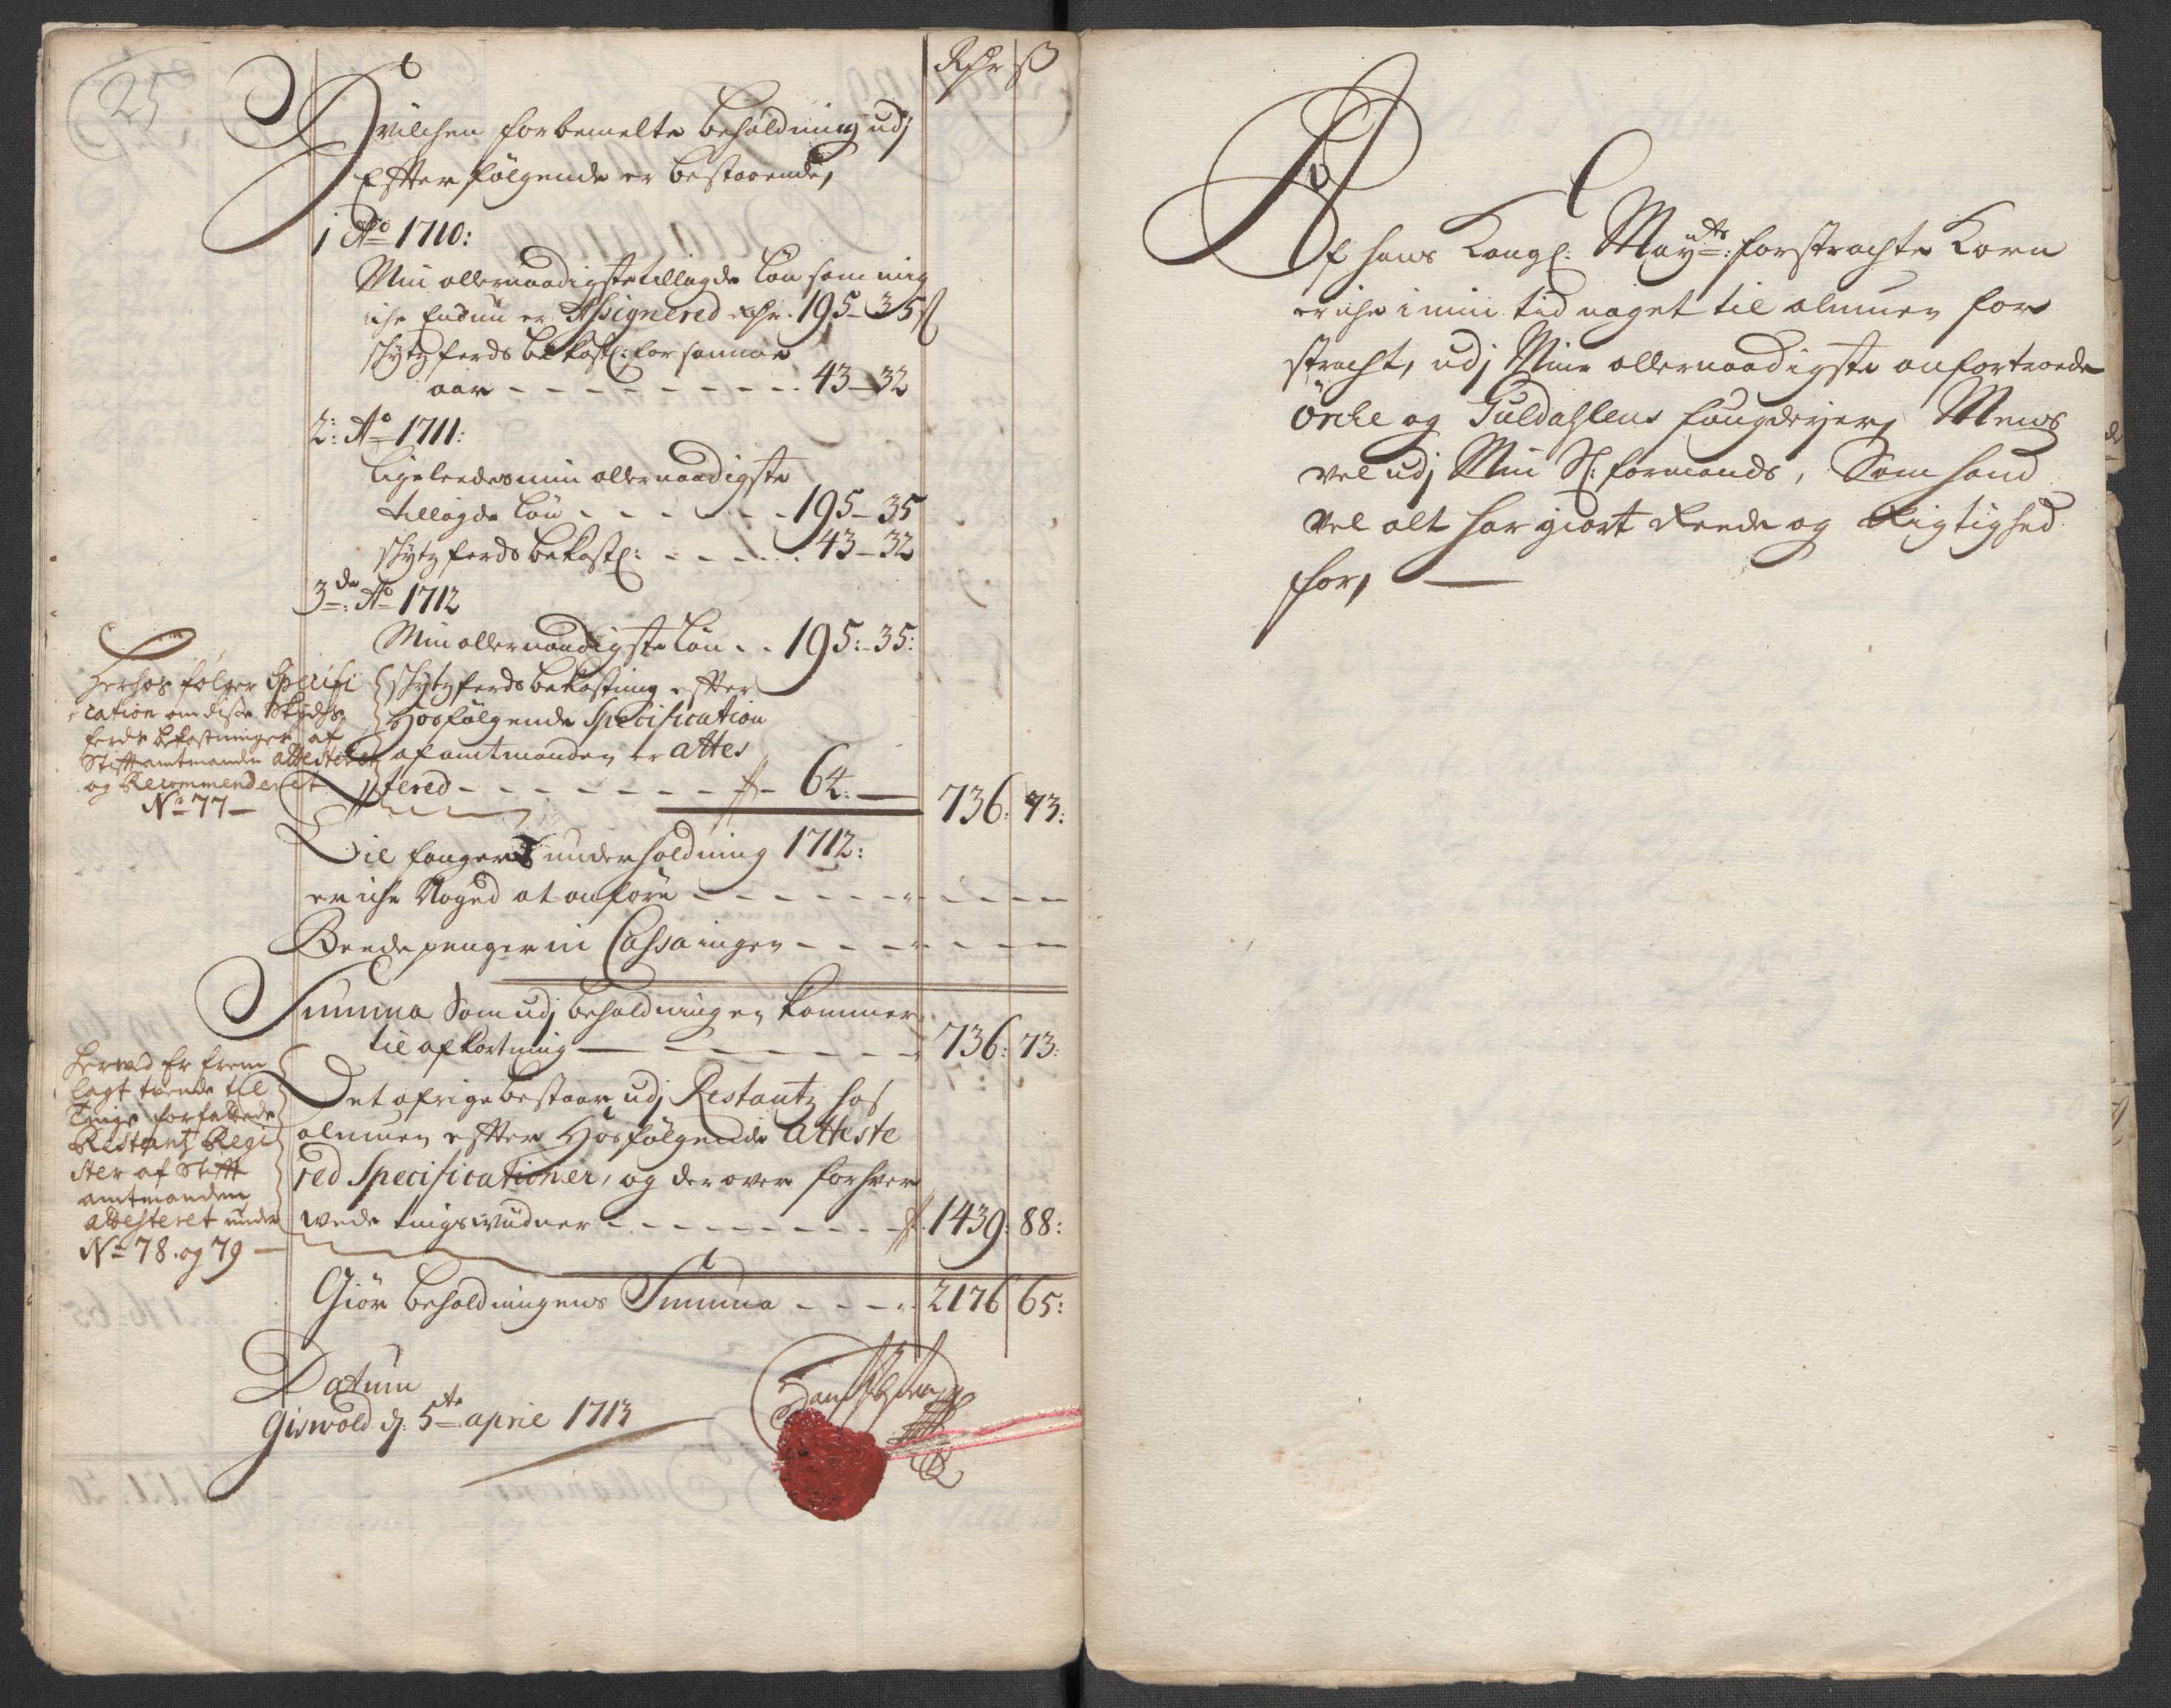 25
Rdr ß
Hvilchen forbemelte beholdning udj
Effterfølgende er bestaaende,
1 Ao 1710:
Min allernaadigste tillagde Løn som mig
iche Endnu er Assignered Rdr. 195-35 ß
schytzferds bekostl: for samme
aar - - - - - - - - - - 43-32
2: Ao 1711:
Ligeleedes min allernaadigste
tillagde Løn - - - - - - 195-35
schytzferds bekostl: - - - - - 43-32
3de: Ao 1712
Min allernaadigste Løn - - 195:-35:
schytzferds bekostning effter
Hosfølgende Specification
af amtmanden er attes
tered - - - - - - - - 64:— 736: 73:
Herhos følger Specifi
cation om disse Skyds
ferds bekostninger af
Stifftamtmanden attesteret
og Recommenderet
No 77—
Til fangers underholdning 1712:
er iche Noged at anføre - - - - - - - - - -
Reede penger in Cassa ingen - - - - - - -
Summa Som udj beholdningen kommer
til afkortning — - - - - - - 736: 73:
Herved Er frem
lagt tvende til
Tinge forfattede
Restantz Regi
ster af Stifft
amtmanden
attesteret under
No 78. og 79 —
Det øfrige bestaar udj Restantz hos
almuen effter Hosfølgende Atteste
red Specificationer, og der over forhver
vede tingsvidner - - - - - - - - - 1439: 88:
Giør beholdningens Summa - - - - 2176 65:
Datum
Giswold d. 5te april 1713
Af hans Kongl: Mayts: forstrachte Korn
er iche i min tid noget til almuen for
stracht, udj Mine allernaadigste anfortroede
Örche og Guldahlens fougderyer, Mens
vel udj Min Sl: formands, Som hand
vel alt har giort Reede og Rigtighed
for, —